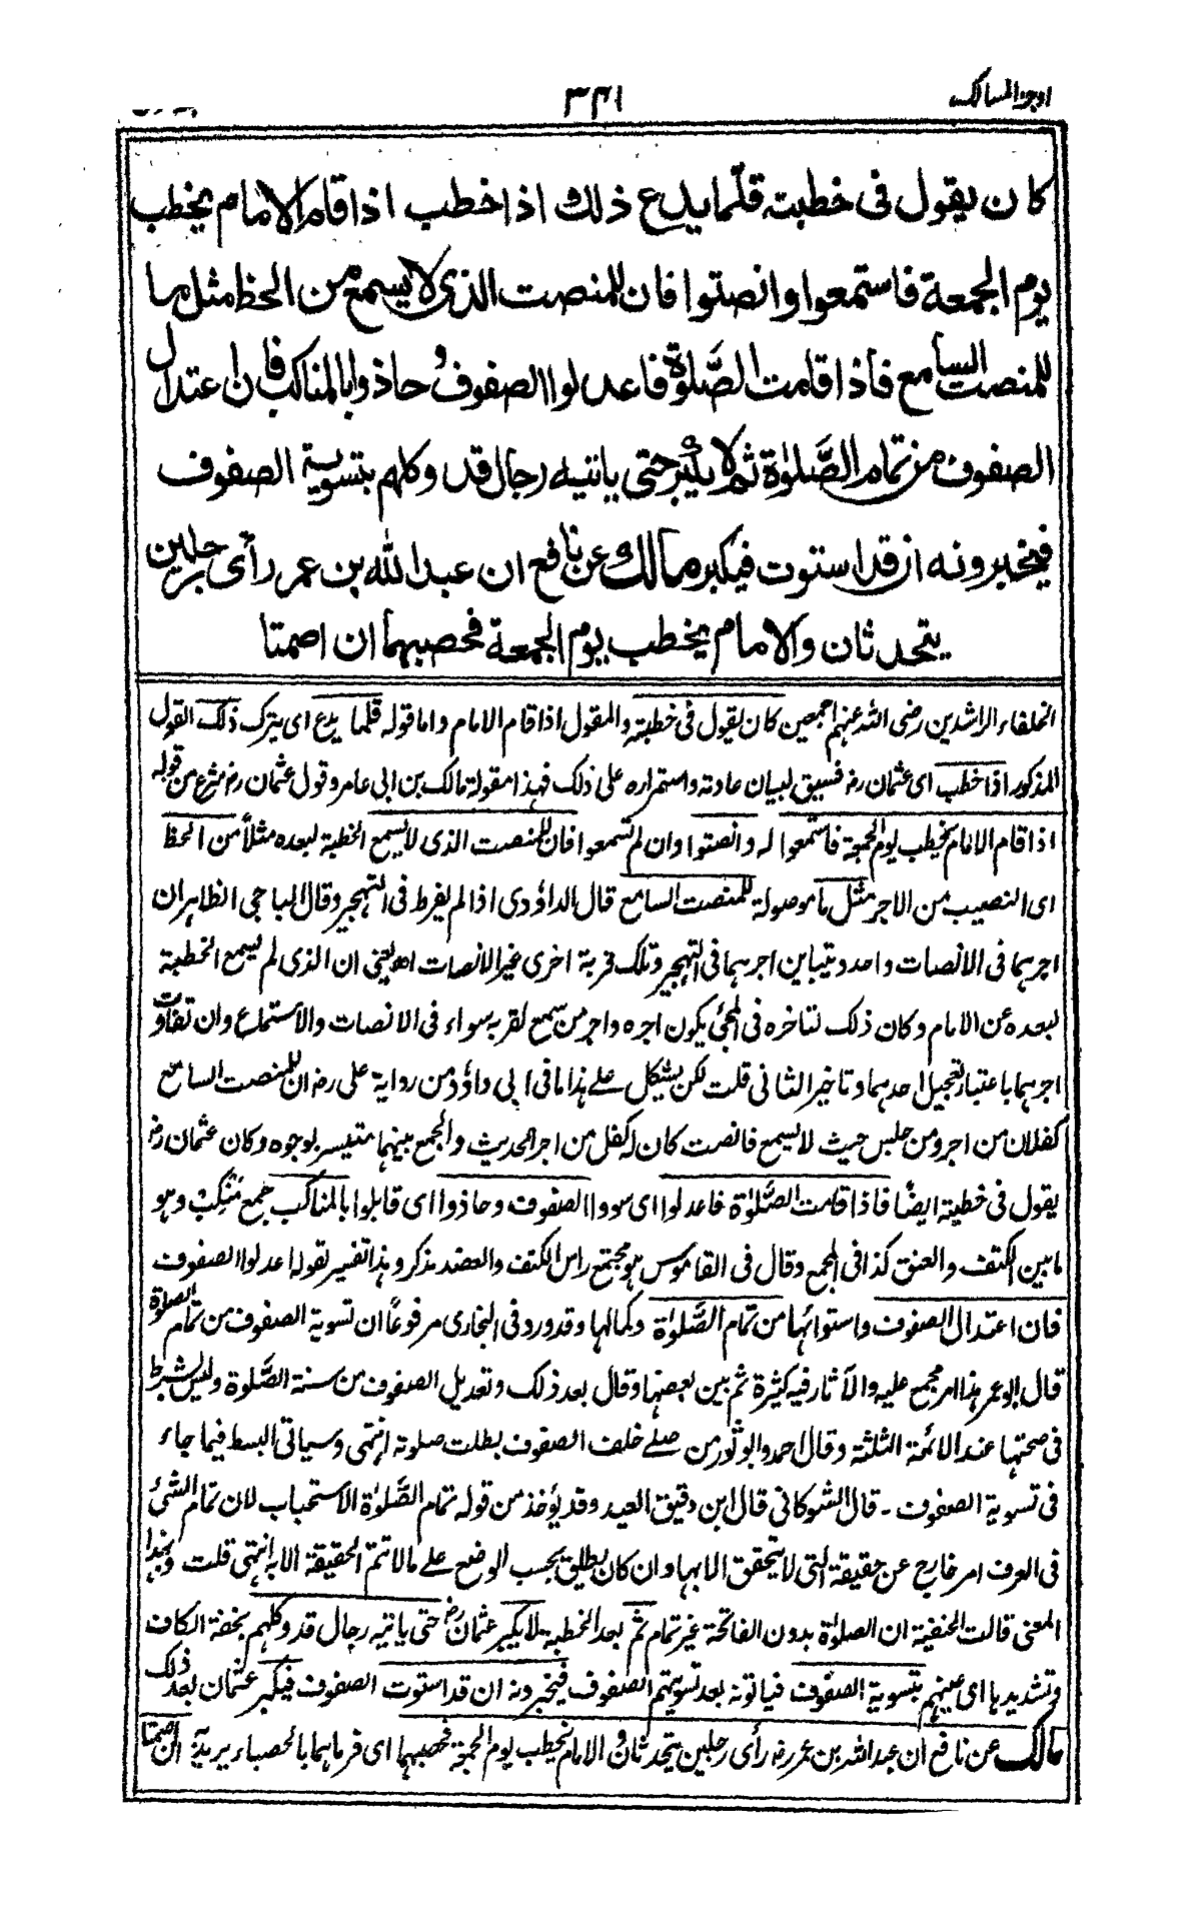 اوجز المسالک
۳۴۱
كان يقول فى خطبته قلّما يدع ذلك اذا خطب اذا قام الامام يخطب
يوم الجمعة فاستمعوا وانصتوا فان للمنصت الذى لا يسمع من الحظ مثل ما
للمنصت السامع فاذا قامت الصَّلوٰة فاعدلوا الصفوف وحاذوا بالمناكب فان اعتدال
الصفوف من تمام الصَّلوٰة ثم لا يكبر حتى ياتيه رجال قد وكلهم بتسوية الصفوف
فيخبرونه ان قد استوت فيكبر مالك عن نافع ان عبد الله بن عمر رأى رجلين
يتحدثان والامام يخطب يوم الجمعة فحصبهما ان اصمتا
الخلفاء الراشدين رضى الله عنهم اجمعين كان يقول فى خطبته والمقول اذا قام الامام واما قوله قلما يدع اى يترك ذلك القول
المذكور اذا خطب اى عثمان رضـ فسيق لبيان عادته واستمراره على ذلك فهذا مقولة مالك بن ابى عامر وقول عثمان رضـ شرع من قوله
اذا قام الامام يخطب يوم الجمعة فاستمعوا له وانصتوا وان لم تسمعوا فان للمنصت الذى لا يسمع الخطبة لبعده مثلاً من الحظ
اى النصيب من الاجر مثل ما موصولة للمنصت السامع قال الداؤدى اذا لم يفرط فى التهجير وقال الباجى الظاهر ان
اجرهما فى الانصات واحد ويتباين اجرهما فى التهجير وتلك قربة اخرى غير الانصات اھ يعنى ان الذى لم يسمع الخطبة
لبعده عن الامام وكان ذلك لتاخره فى المجئ يكون اجره واجر من سمع لقربه سواء فى الانصات والاستماع وان تفاوت
اجرهما باعتبار تعجيل احدهما وتاخير الثانى قلت لكن يشكل على هذا ما فى ابى داؤد من رواية على رضـ ان للمنصت السامع
كفلان من اجر ومن جلس حيث لا يسمع فانصت كان له كفل من اجر الحديث والجمع بينهما متيسر بوجوه وكان عثمان رضـ
يقول فى خطبته ايضًا فاذا قامت الصَّلوٰة فاعدلوا اى سووا الصفوف وحاذوا اى قابلوا بالمناكب جمع مَنْكِبْ وهو
ما بين الكتف والعنق كذا فى المجمع وقال فى القاموس هو مجتمع راس الكتف والعضد مذكر وهذا تفسير لقوله اعدلوا الصفوف
فان اعتدال الصفوف واستوائها من تمام الصَّلوٰة وكمالها وقد ورد فى البخارى مرفوعاً ان تسوية الصفوف من تمام الصلوة
قال ابو عمر هذا امر مجمع عليه والآثار فيه كثيرة ثم بين بعضها وقال بعد ذلك وتعديل الصفوف من سنة الصَّلوة وليس بشرط
فى صحتها عند الائمة الثلثة وقال احمد وابو ثور من صلے خلف الصفوف بطلت صلوته انتهى وسياتى البسط فيما جاء
فى تسوية الصفوف ۔ قال الشوكانى قال ابن دقيق العيد وقد يؤخذ من قوله تمام الصَّلوٰة الاستحباب لان تمام الشئ
فى العرف امر خارج عن حقيقة التى لا يتحقق الا بها وان كان يطلق بحسب الوضع على مالا تتم الحقيقة الا به انتهى قلت وبهذا
المعنى قالت الحنفية ان الصلوٰة بدون الفاتحة غير تمام ثم بعد الخطبة لا يكبر عثمان رضـ حتى ياتيه رجال قد وكلهم بخفة الكاف
وتشديدها اى عينهم بتسوية الصفوف فياتونه بعد تسويتهم الصفوف فيخبرونه ان قد استوت الصفوف فيكبر عثمان بعد ذلك
مالك عن نافع ان عبد الله بن عمر رضـ رأى رجلين يتحدثان والامام يخطب يوم الجمعة فحصبهما اى فرماهما بالحصباء يريد به ان اصمتا